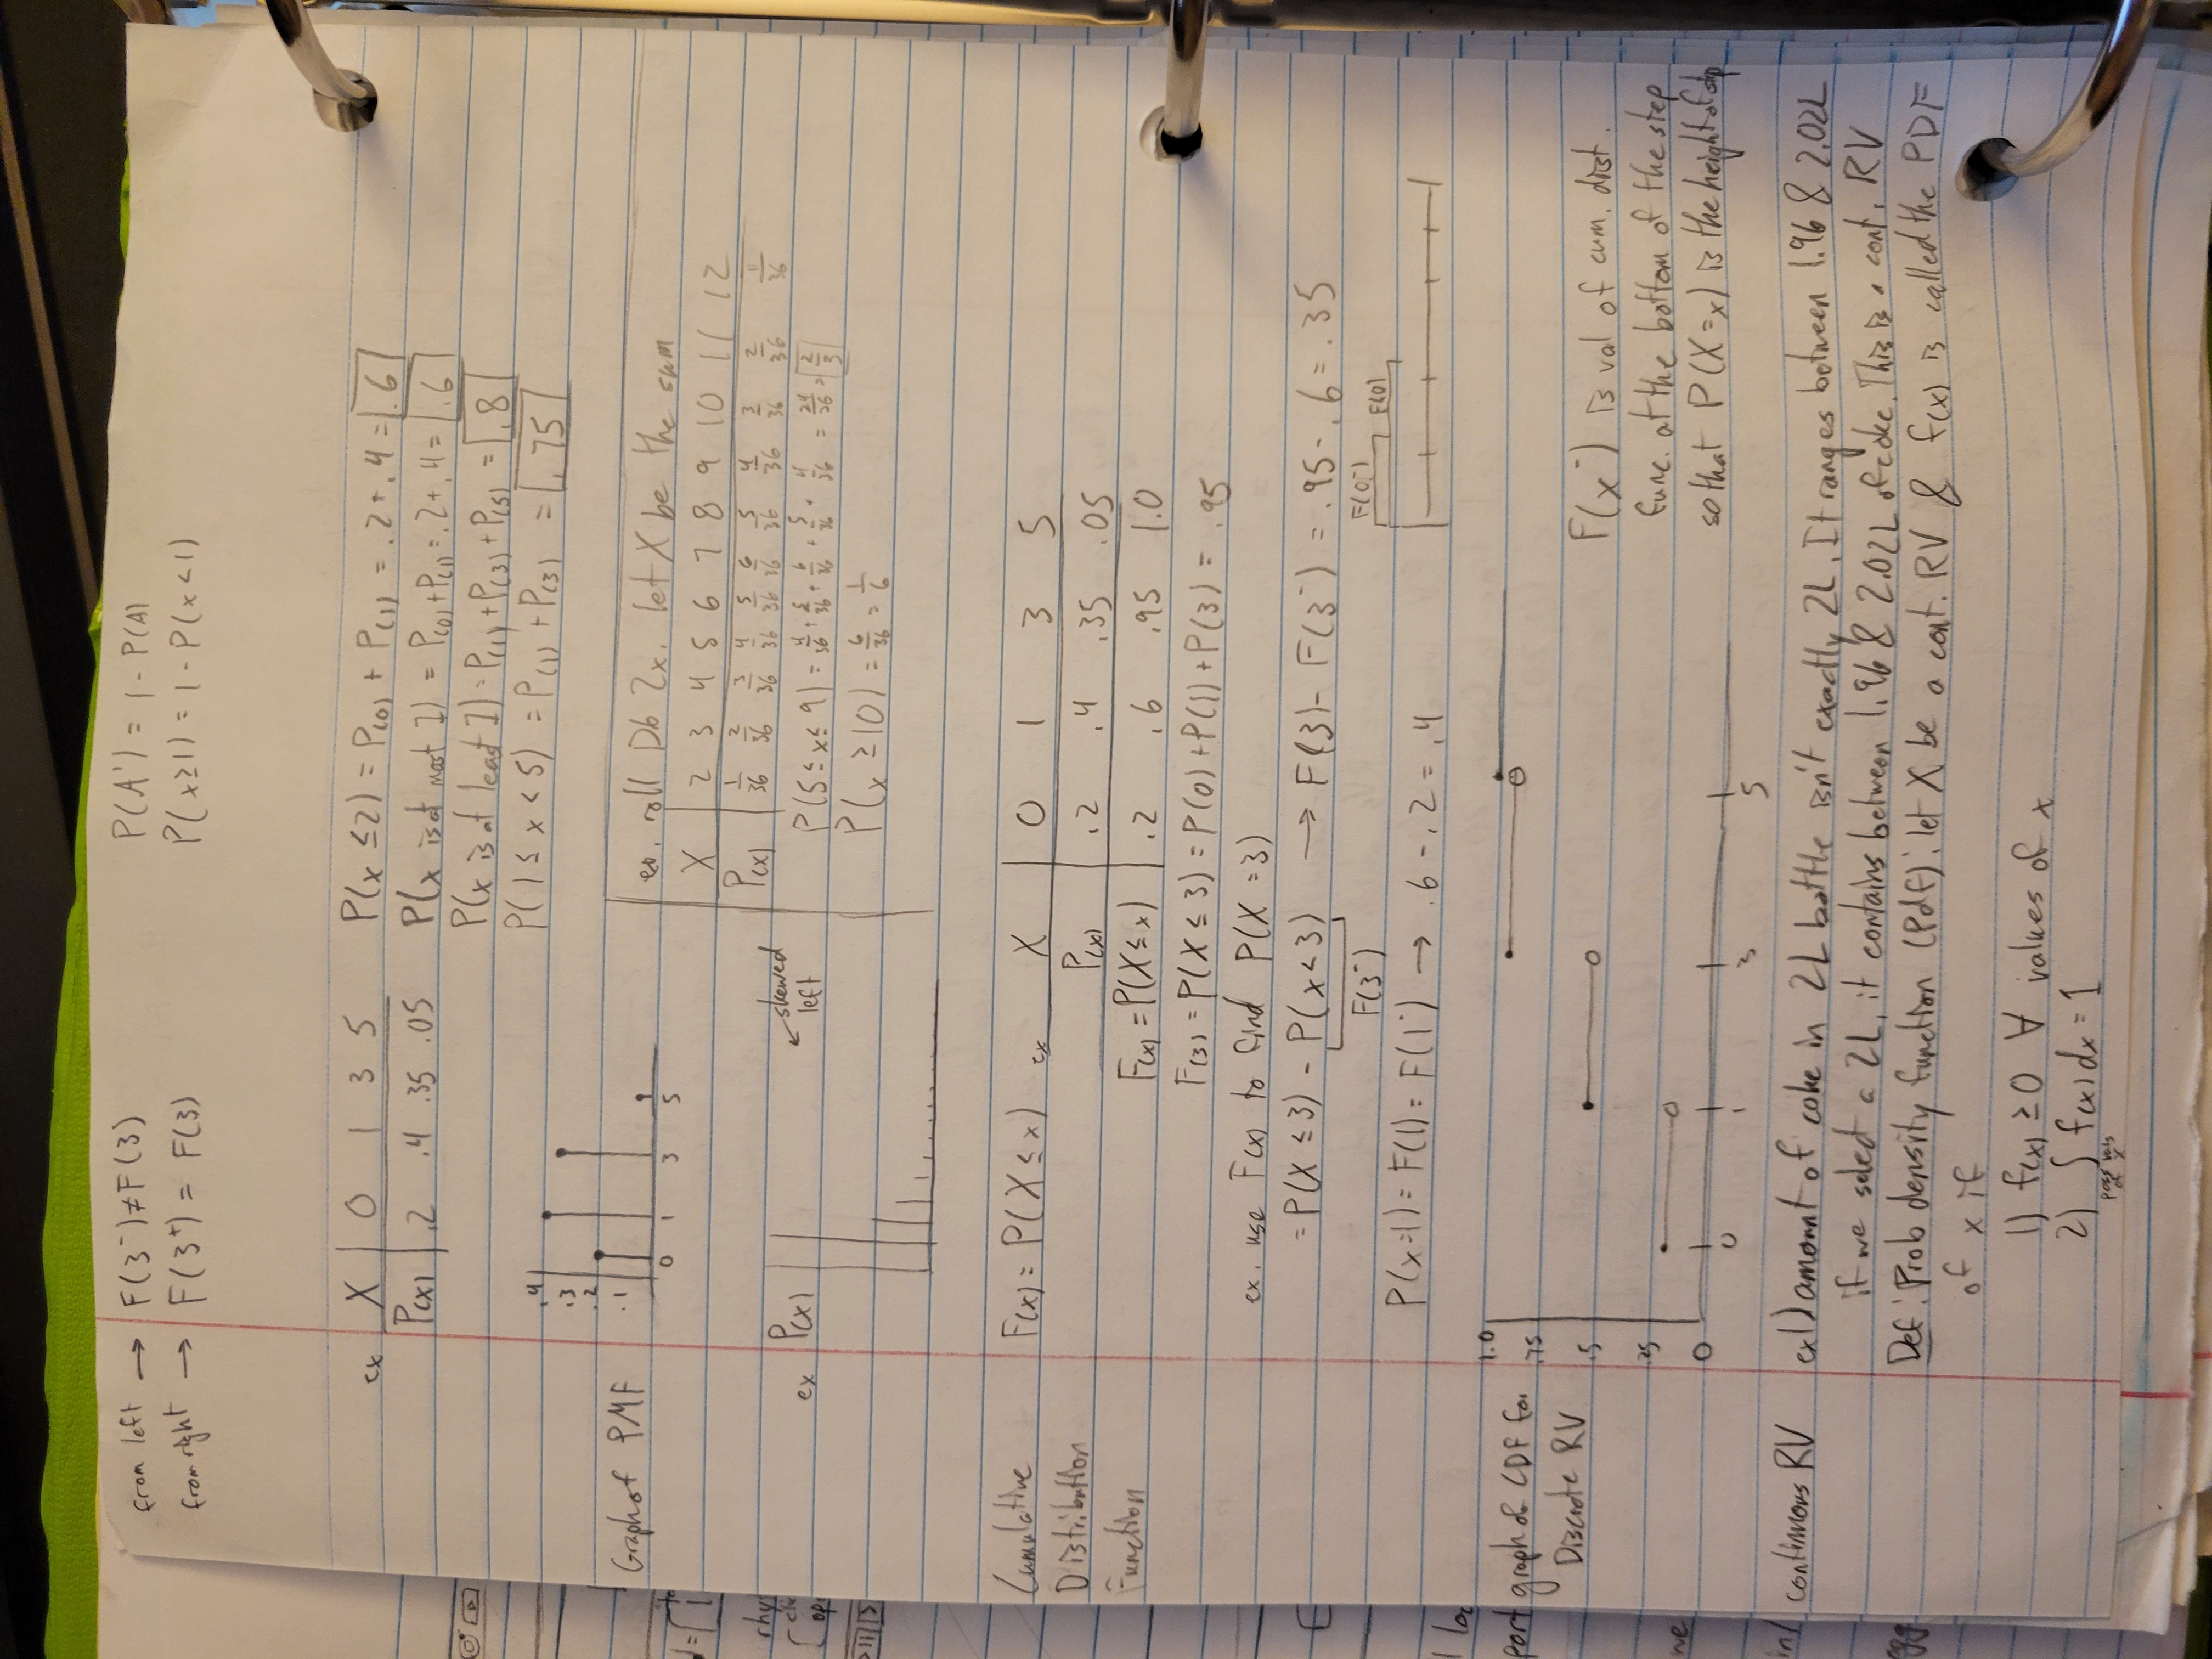 from left → F(3⁻)≠F(3)
from right → F(3⁺) = F(3)
P(A') = 1 - P(A)
P(x≥1) = 1 - P(x<1)
ex X | 0 1 3 5
P(x) | .2 .4 .35 .05
P(x ≤2) = P(0) + P(1) = .2+.4 = .6
P(x is at most 1) = P(0)+P(1) = .2+.4 = .6
P(x is at least 1) = P(1)+P(3)+P(5) = .8
P(1≤ x < 5) = P(1) + P(3) = .75
Graph of PMF
.4
.3
.2
.1
0 1 3 5
ex. roll D6 2x. let X be the sum
X | 2 3 4 5 6 7 8 9 10 11 12
P(x) | 1/36 2/36 3/36 4/36 5/36 6/36 5/36 4/36 3/36 2/36 1/36
P(5≤x≤9) = 4/36 + 5/36 + 6/36 + 5/36 + 4/36 = 24/36 = 2/3
P(x ≥10) = 6/36 = 1/6
ex P(x)
← skewed
left
Cumulative
Distribution
Function
F(x) = P(X ≤ x) ex X | 0 1 3 5
P(x) | .2 .4 .35 .05
F(x) = P(X≤x) | .2 .6 .95 1.0
F(3) = P(X ≤ 3) = P(0)+P(1)+P(3) = .95
ex. use F(x) to find P(X=3)
= P(X ≤3) - P(x<3) → F(3) - F(3⁻) = .95 - .6 = .35
F(3⁻)
F(0⁻) F(0)
P(x=1) = F(1) = F(1⁻) → .6 - .2 = .4
graph of CDF for
Discrete RV
1.0
.75
.5
.25
0
0 1 3 5
F(x⁻) is val of cum. dist.
func. at the bottom of the step
so that P(X=x) is the height of step
continuous RV ex1) amount of coke in 2L bottle isn't exactly 2L. It ranges between 1.96 & 2.02L
if we select a 2L, it contains between 1.96 & 2.02L of coke. This is a cont. RV
Def: Prob density function (Pdf): let X be a cont. RV & f(x) is called the PDF
of x if
1) f(x) ≥0 ∀ values of x
2) ∫ f(x)dx = 1
poss vals
of x